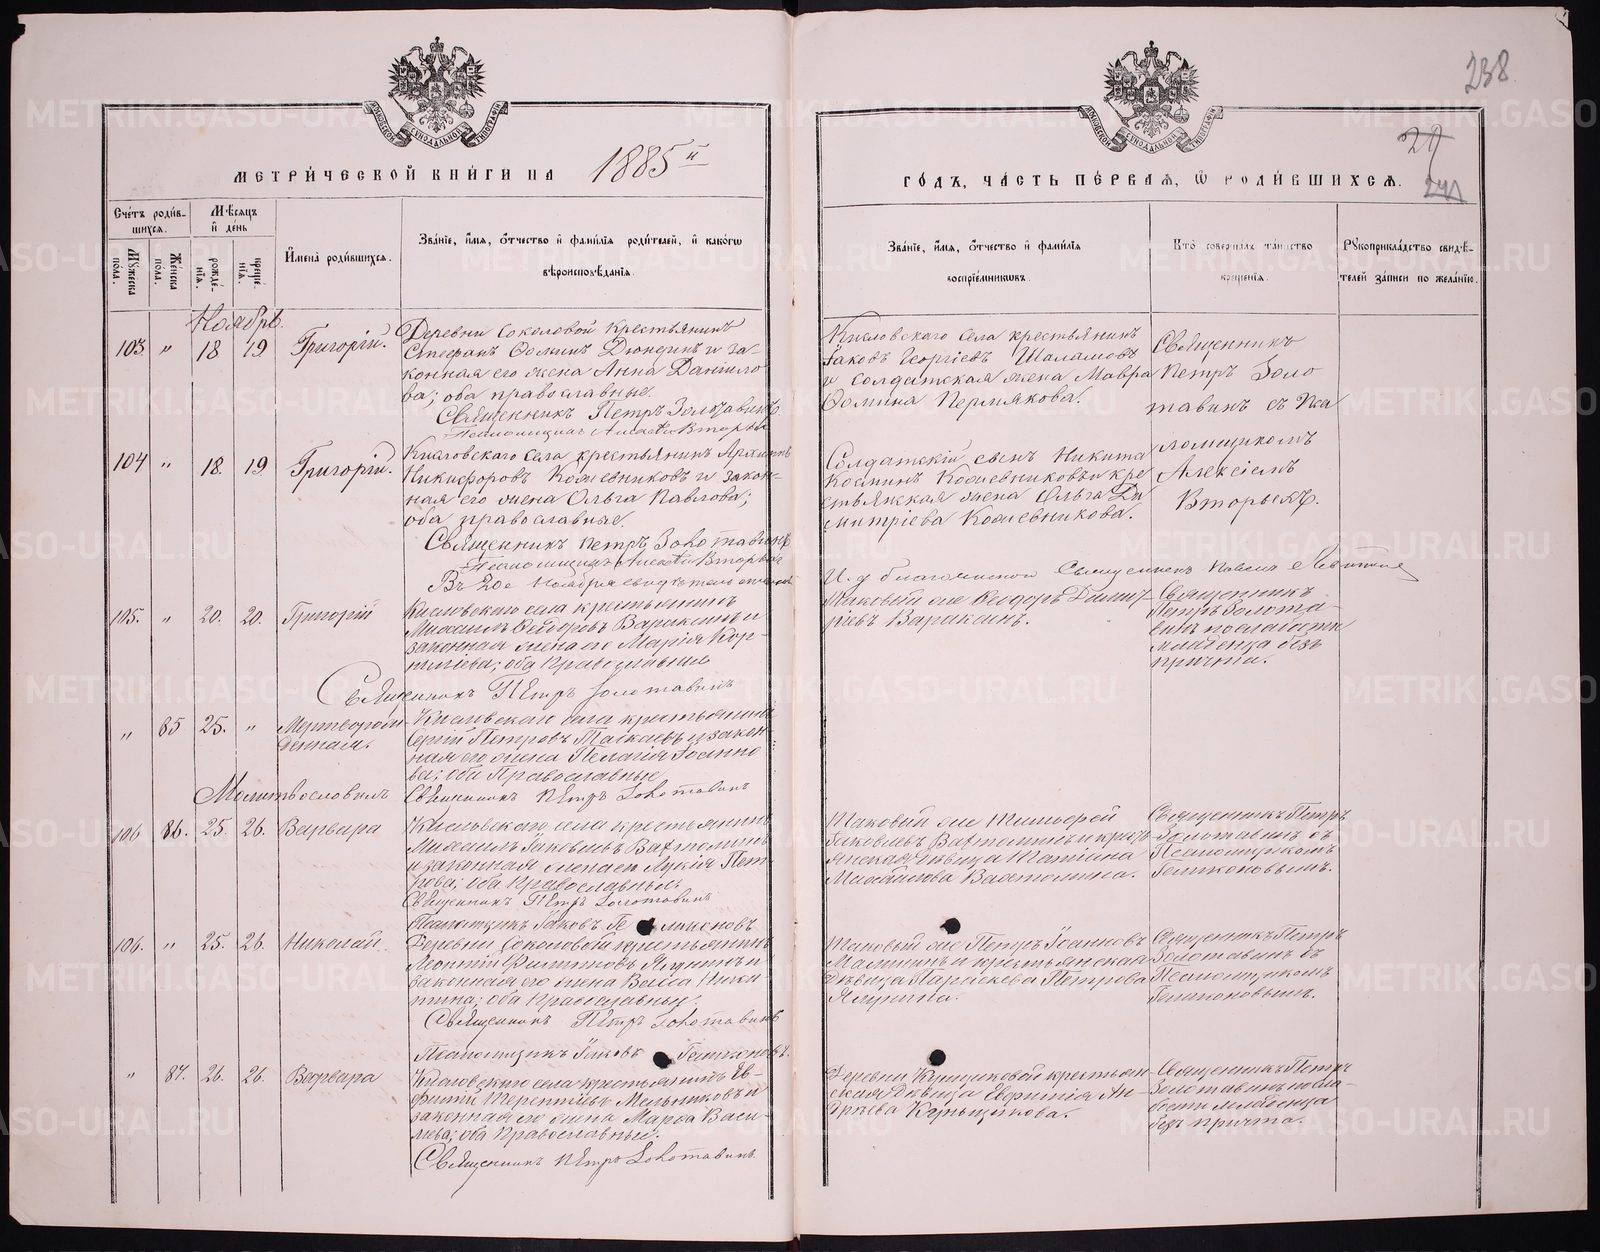 238
МЕТРИ́ЧЕСКОЙ КНИ́ГИ НА 1885 й
ГО́ДЪ, ЧА́СТЬ ПЕ́РВАЯ, Ѡ РОДИ́ВШИХСЯ.
Сче́тъ роди́вшихся.
Мѣ́сяцъ и́ де́нь
Му́жеска пола.
Же́нска пола.
рожде́нїя.
креще́нїя.
И҆мена̀ роди́вшихся.
Зва́нїе, и҆́мя, ѻ҆́тчество и҆ фами́лїя роди́телей, и҆ како́гѡ
вѣроисповѣ́данїя.
Зва́нїе, и҆́мя, ѻ҆́тчество и҆ фами́лїя
воспрїе́мниковъ.
Кто̀ соверша́лъ та́инство
креще́нїя.
Рукоприкла́дство свидѣ́телей за́писи по жела́нїю.
Ноябрь.
103 " 18 19 Григорій.
Деревни Соколовой крестьянинъ
Стефанъ Ѳоминъ Дюндинъ и за-
конная его жена Анна Данило
ва; оба православные.
Священникъ Петръ Золотавинъ.
Кисловского села крестьянинъ
Іаковъ Георгіевъ Шаламовъ
и солдатская жена Мавра
Ѳомина Пермякова.
Священникъ
Петръ Золо
тавинъ съ Пса
ломщикомъ
Алексіемъ
Вторыхъ.
104 " 18. 19 Григорій.
Кисловского села крестьянинъ Архиппъ
Никифоровъ Кожевниковъ и закон-
ная его жена Ольга Павлова;
оба православные.
Священникъ Петръ Золотавинъ
Псаломщикъ Алексѣй Вторыхъ
Солдатскій сынъ Никита
Косминъ Кожевниковъ и кре
стьянская жена Ольга Ди
митріева Кожевникова.
Въ 20е Ноября
И. д. благочиннаго Священникъ Павелъ
105. " 20. 20. Григорій
Кисловского села крестьянинъ
Михаилъ Ѳедоровъ Вараксинъ и
законная жена его Марія Кор-
ниліева; оба Православные
Священникъ Петръ Золотавинъ
Таковой же Ѳеодоръ Димит-
ріевъ Вараксинъ.
Священникъ
Петръ Золота-
винъ по слабости
младенца безъ
причта.
" 85 25. " Мертворож
денная.
Кисловского села крестьянинъ
Сергій Петровъ и закон-
ная его жена Пелагія Іоанно
ва; оба Православные
Молитвословилъ Священникъ Петръ Золотавинъ
106 86. 25. 26. Варвара
Кисловского села крестьянинъ
Михаилъ Іаковлевъ
и законная жена его Лукія Пет
рова; оба Православные
Священникъ Петръ Золотавинъ
Псаломщикъ Іаковъ
Таковой же Тимоѳей
Іаковлевъ и кресть
янская дѣвица Татіана
Михайлова
Священникъ Петръ
Золотавинъ съ
Псаломщикомъ
106. " 25. 26. Николай
Деревни Соколовой крестьянинъ
Леонтій Филипповъ Ялунинъ и
законная его жена Васса Ники
тина; оба Православные.
Священникъ Петръ Золотавинъ
Псаломщикъ Іаковъ
Таковой же Петръ Іоанновъ
Малининъ и крестьянская
дѣвица Параскева Петрова
Ялунина.
Священникъ Петръ
Золотавинъ съ
Псаломщикомъ
" 87. 26. 26. Варвара
Кисловского села крестьянинъ Ев-
фимій Терентіевъ Мельниковъ и
законная его жена Марѳа Васи
льева; оба Православные.
Священникъ Петръ Золотавинъ.
Деревни крестьян-
ская дѣвица Евфимія Ан-
дреева
Священникъ Петръ
Золотавинъ по сла-
бости младенца
безъ причта.
METRIKI.GASO-URAL.RU